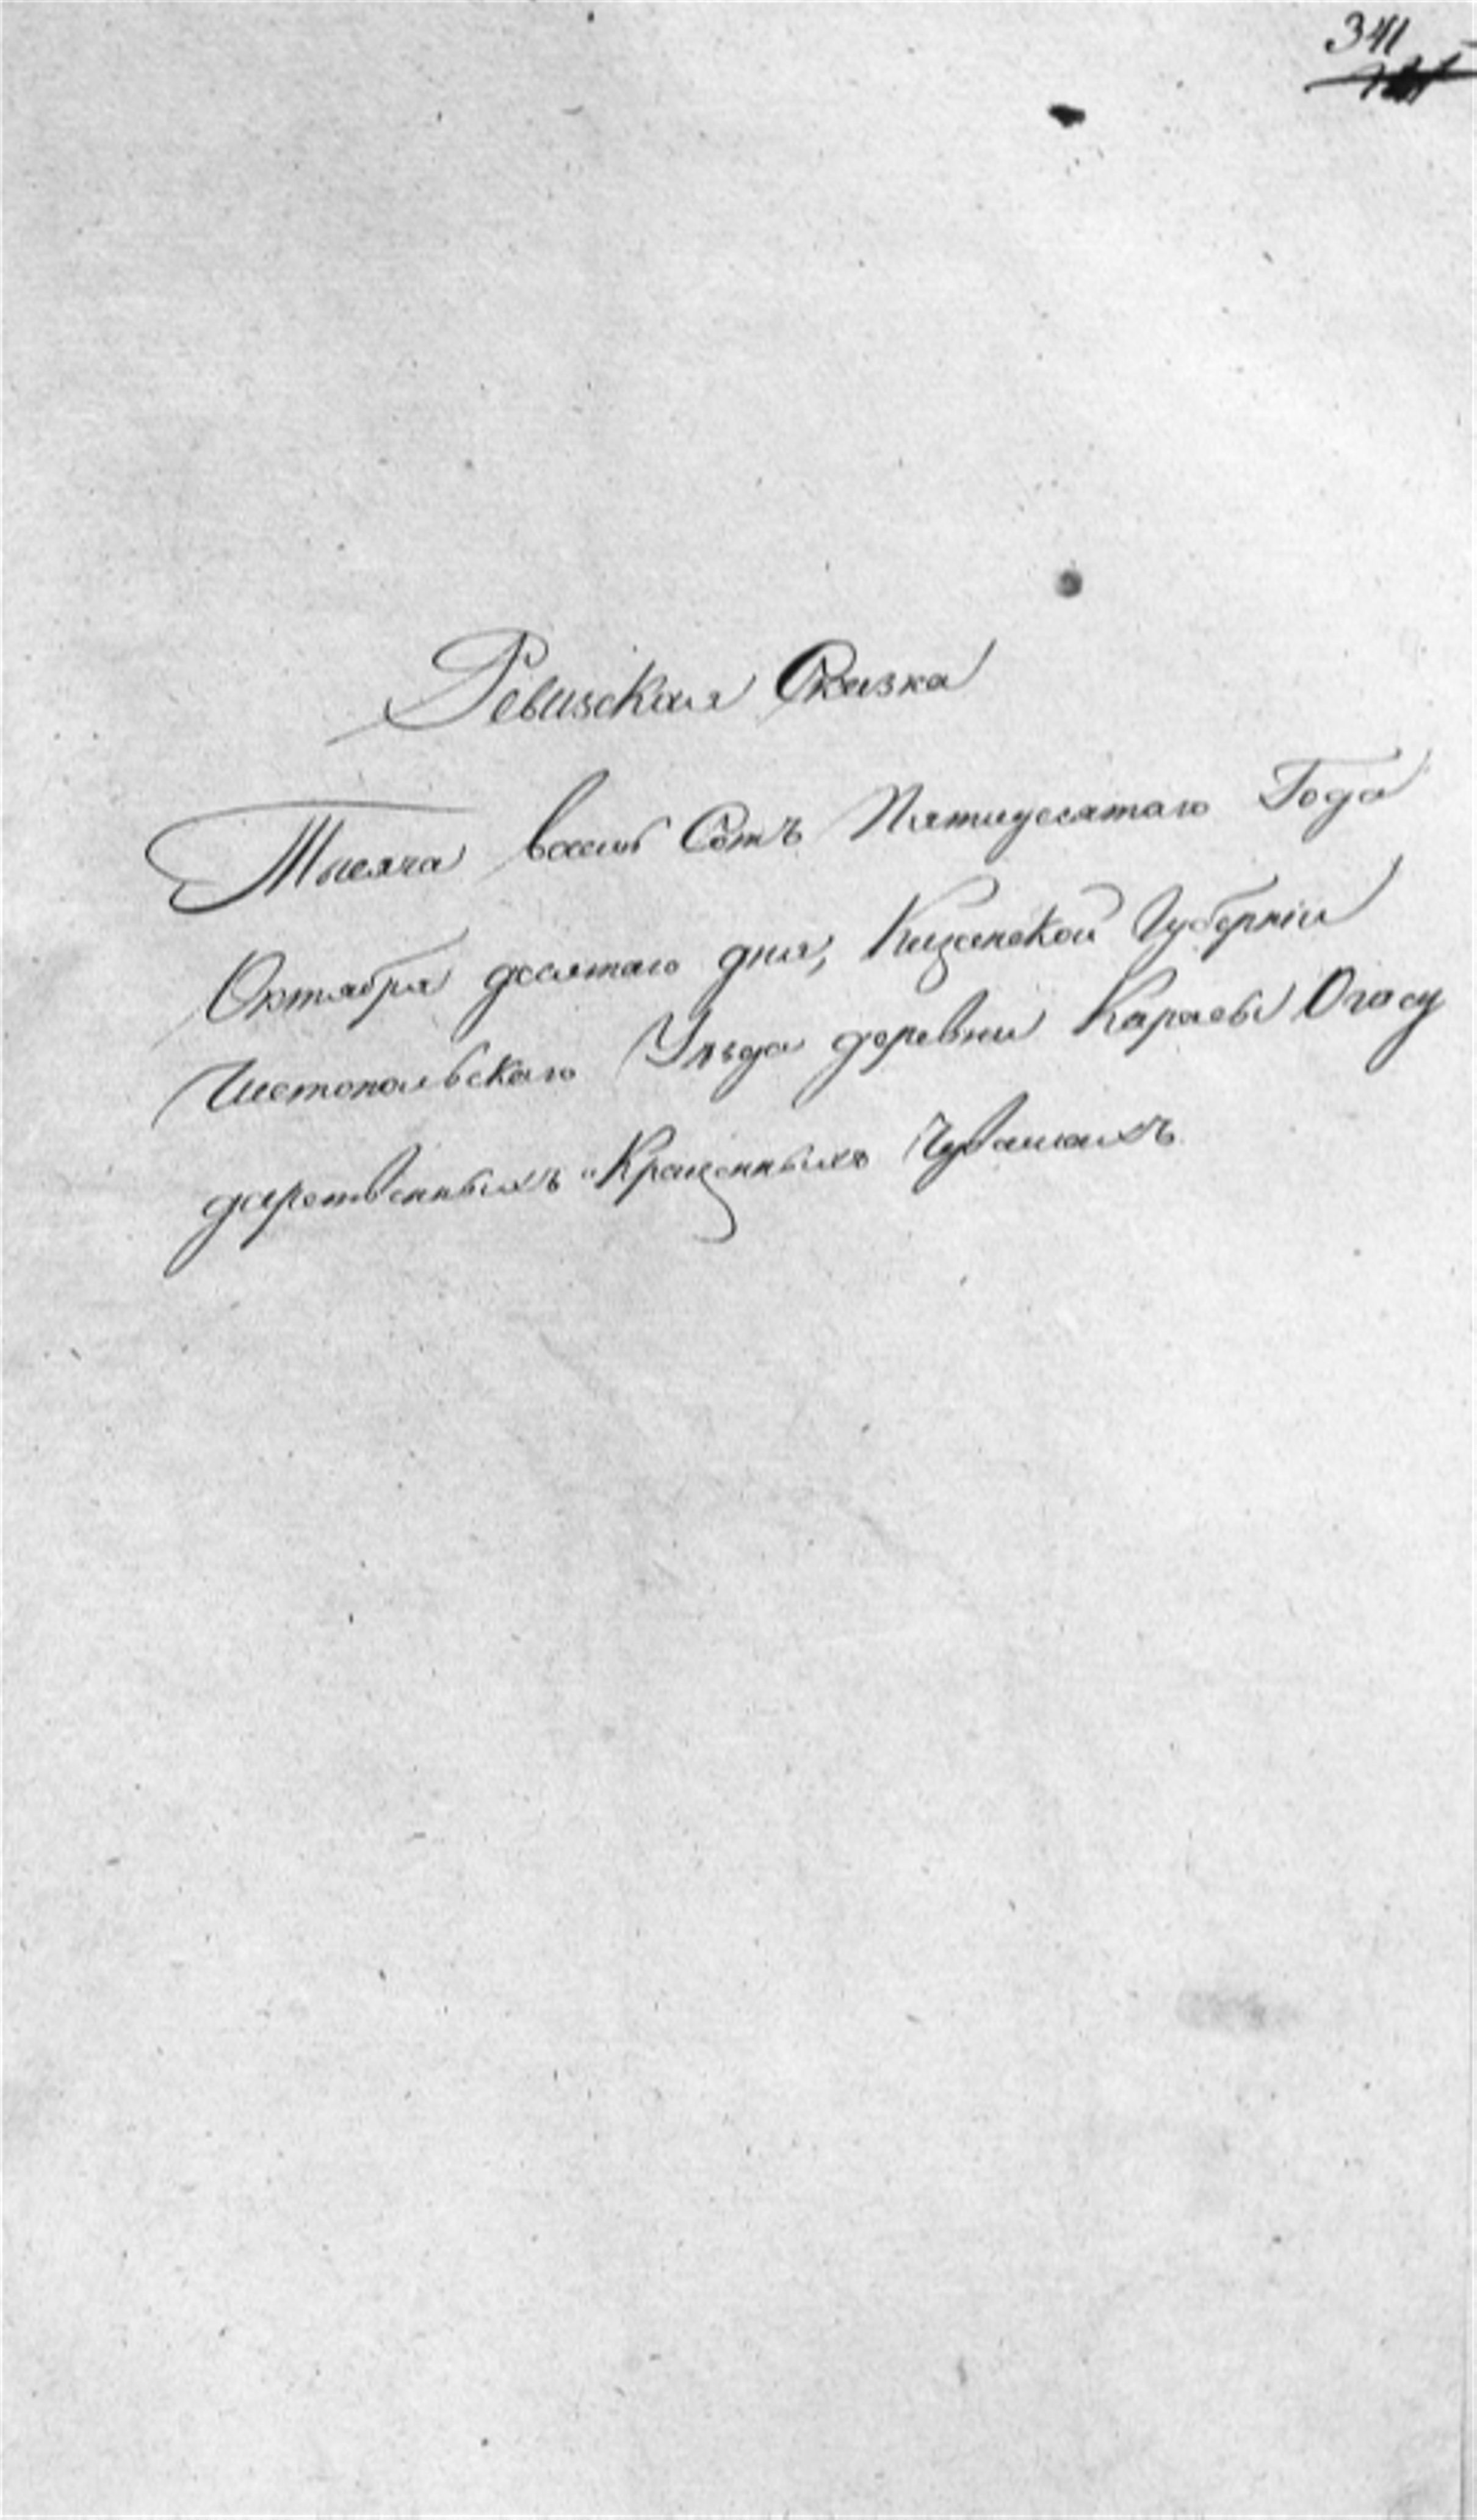 341
Ревизская Сказка
Тысяча восемь Сотъ Пятидесятаго Года
Октября десятаго дня, Казанской Губерніи
Чистопольскаго Уѣзда деревни Караевы О госу
дарственныхъ Крещенныхъ Чувашахъ